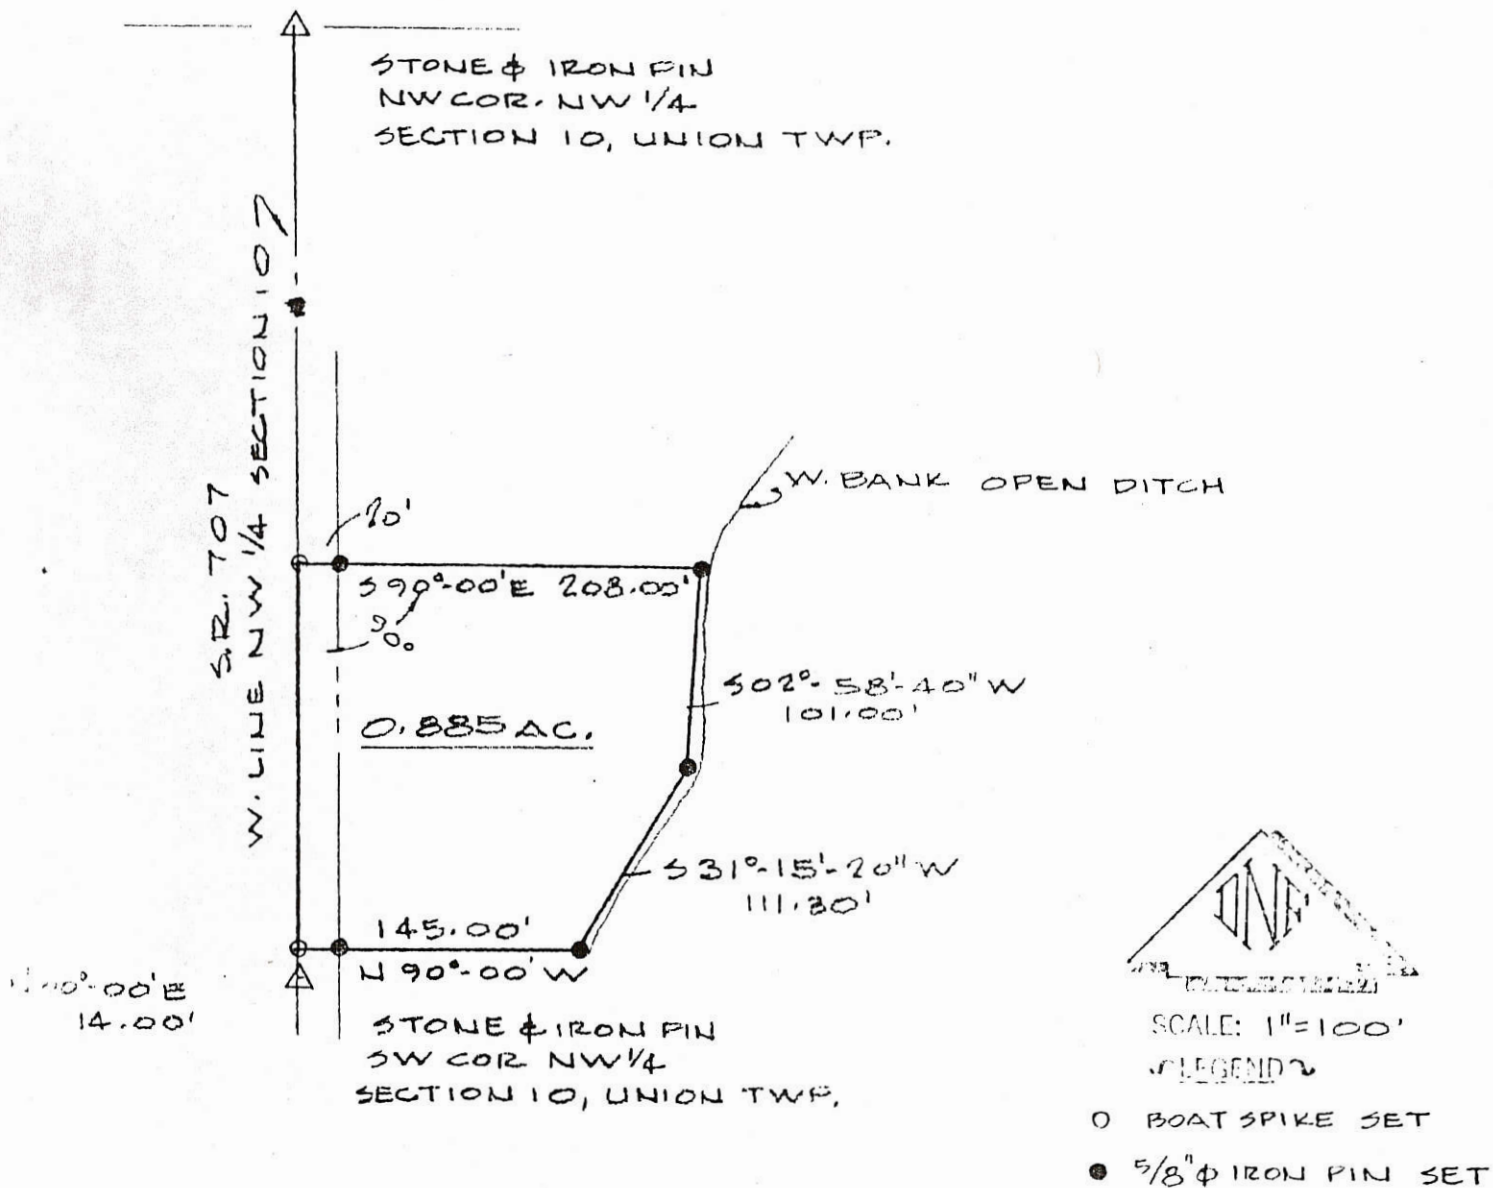 STONE & IRON PIN
NW COR. NW 1/4
SECTION 10, UNION TWP.
W. LINE NW 1/4 SECTION 10
S.R. 707
W. BANK OPEN DITCH
20'
S 90°-00' E 208.00'
S 02°-58'-40" W
101.00'
0.885 AC.
S 31°-15'-20" W
111.30'
145.00'
N 90°-00' W
00'E
14.00'
STONE & IRON PIN
SW COR NW 1/4
SECTION 10, UNION TWP.
SCALE: 1"=100'
LEGEND
O BOAT SPIKE SET
● 5/8"ϕ IRON PIN SET